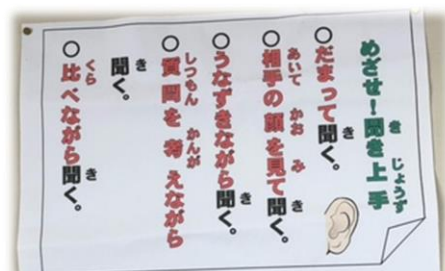 めざせ！聞き上手
○だまって聞く。
○相手の顔を見て聞く。
○うなずきながら聞く。
○質問を考えながら
聞く。
○比べながら聞く。